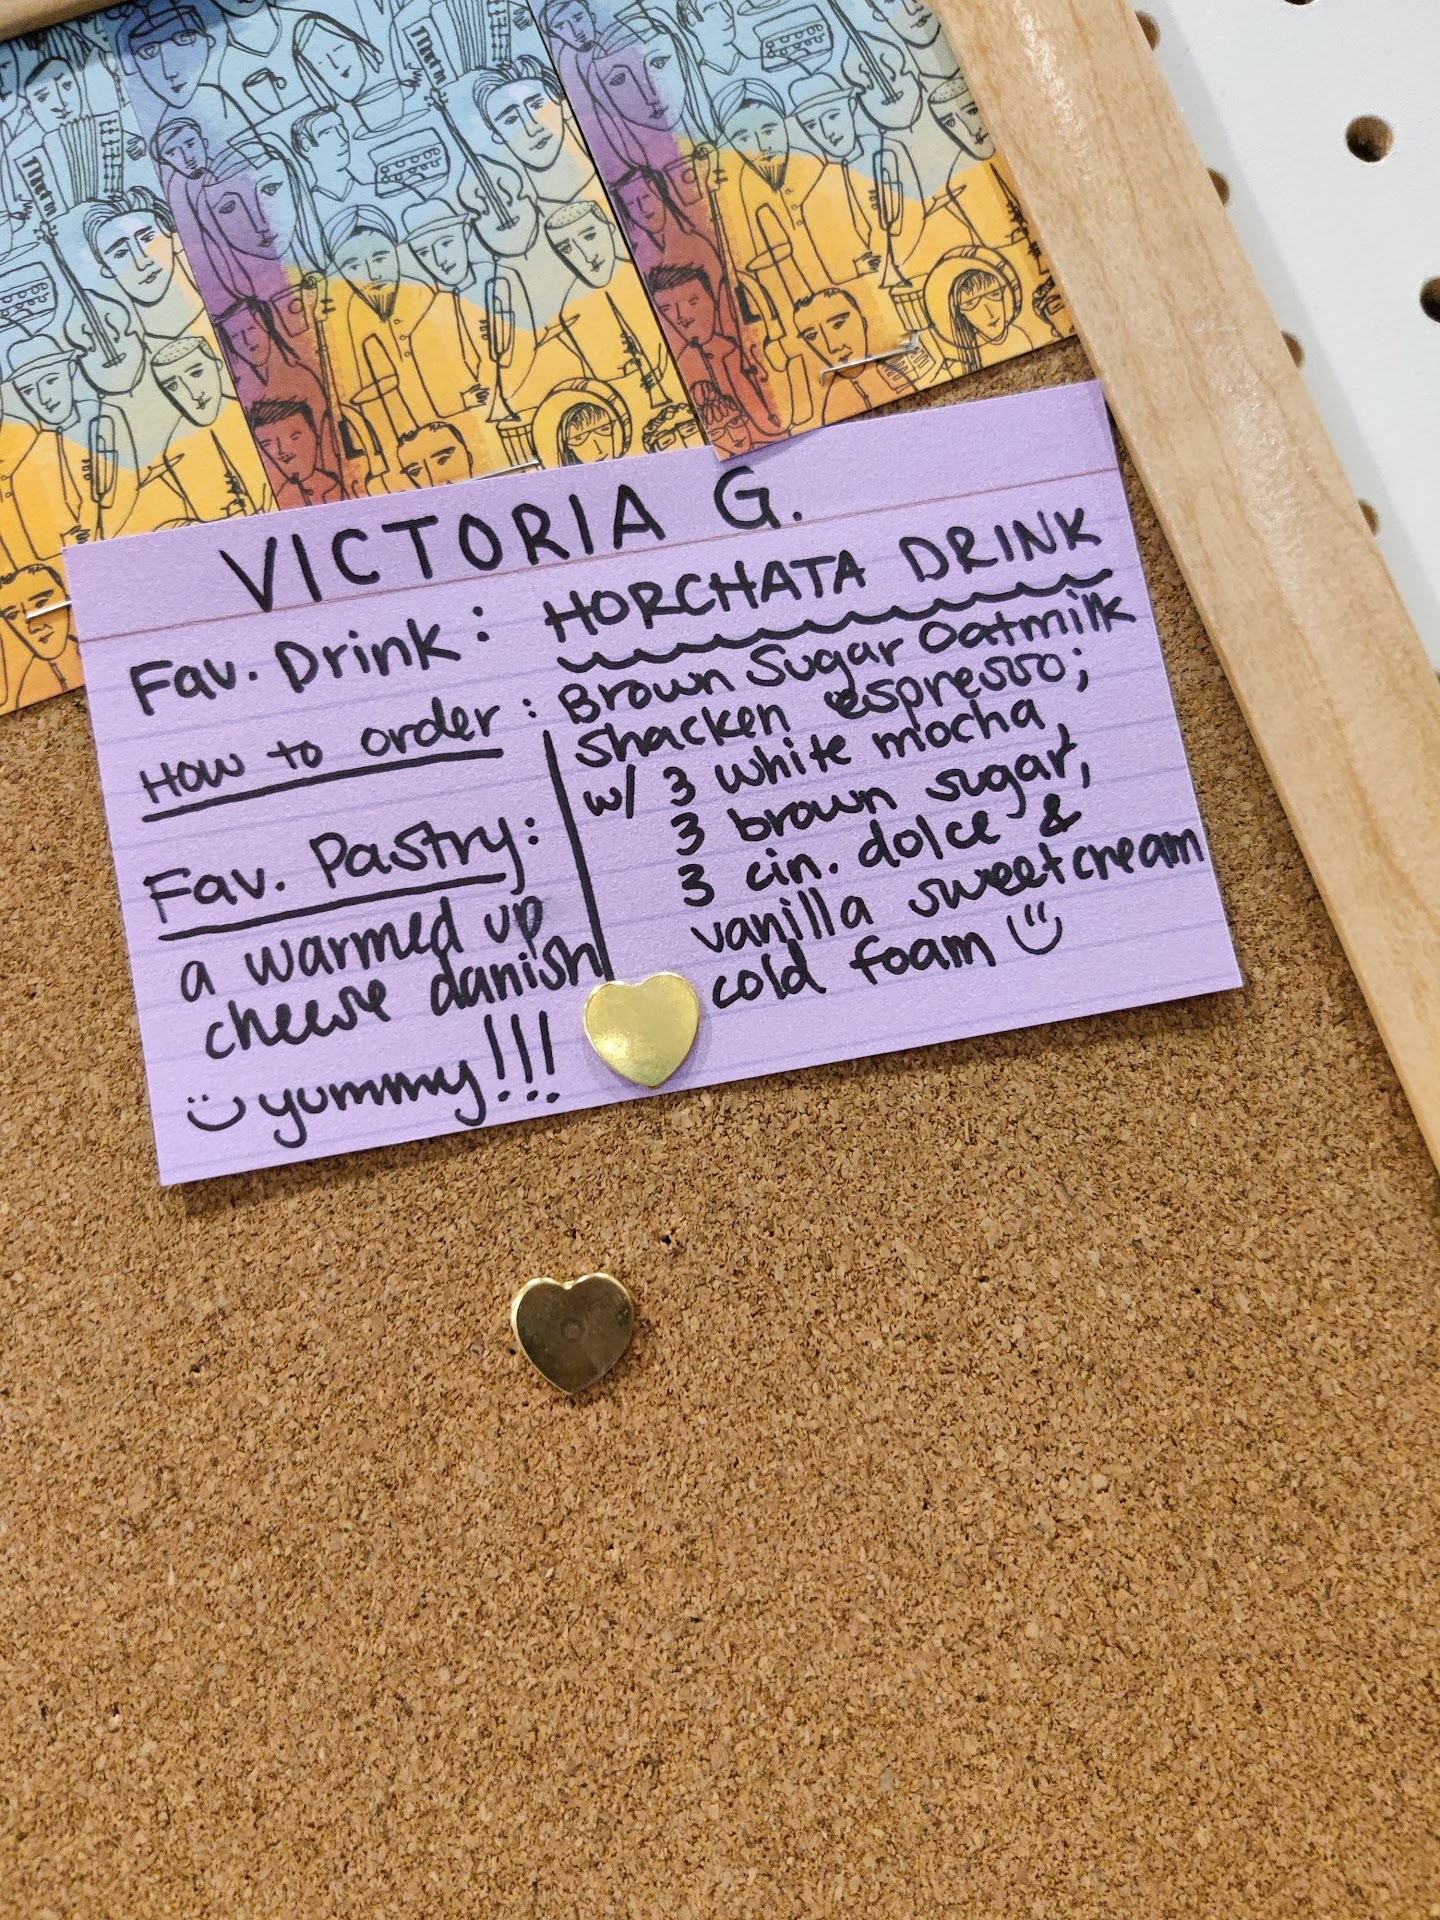 VICTORIA G.
Fav. Drink: HORCHATA DRINK
How to order: Brown Sugar Oatmilk
shacken espresso;
w/ 3 white mocha,
3 brown sugar,
3 cin. dolce &
vanilla sweetcream
cold foam
Fav. Pastry:
a warmed up
cheese danish
yummy!!!